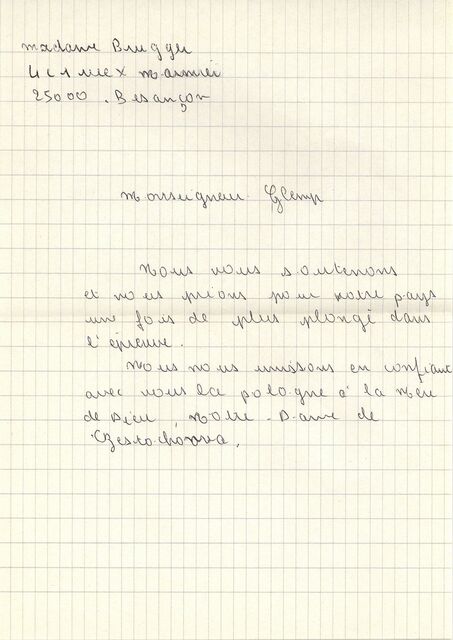 madame Brugger
4 c 1 vieX
25000. Besançon
Monseigneur Glemp
Nous vous soutenons
et nous prions pour votre pays
une fois de plus plongé dans
l'épreuve.
Nous nous unissons en confiant
avec vous la pologne à la Mère
de Dieu, Notre-Dame de
Czestochowa.